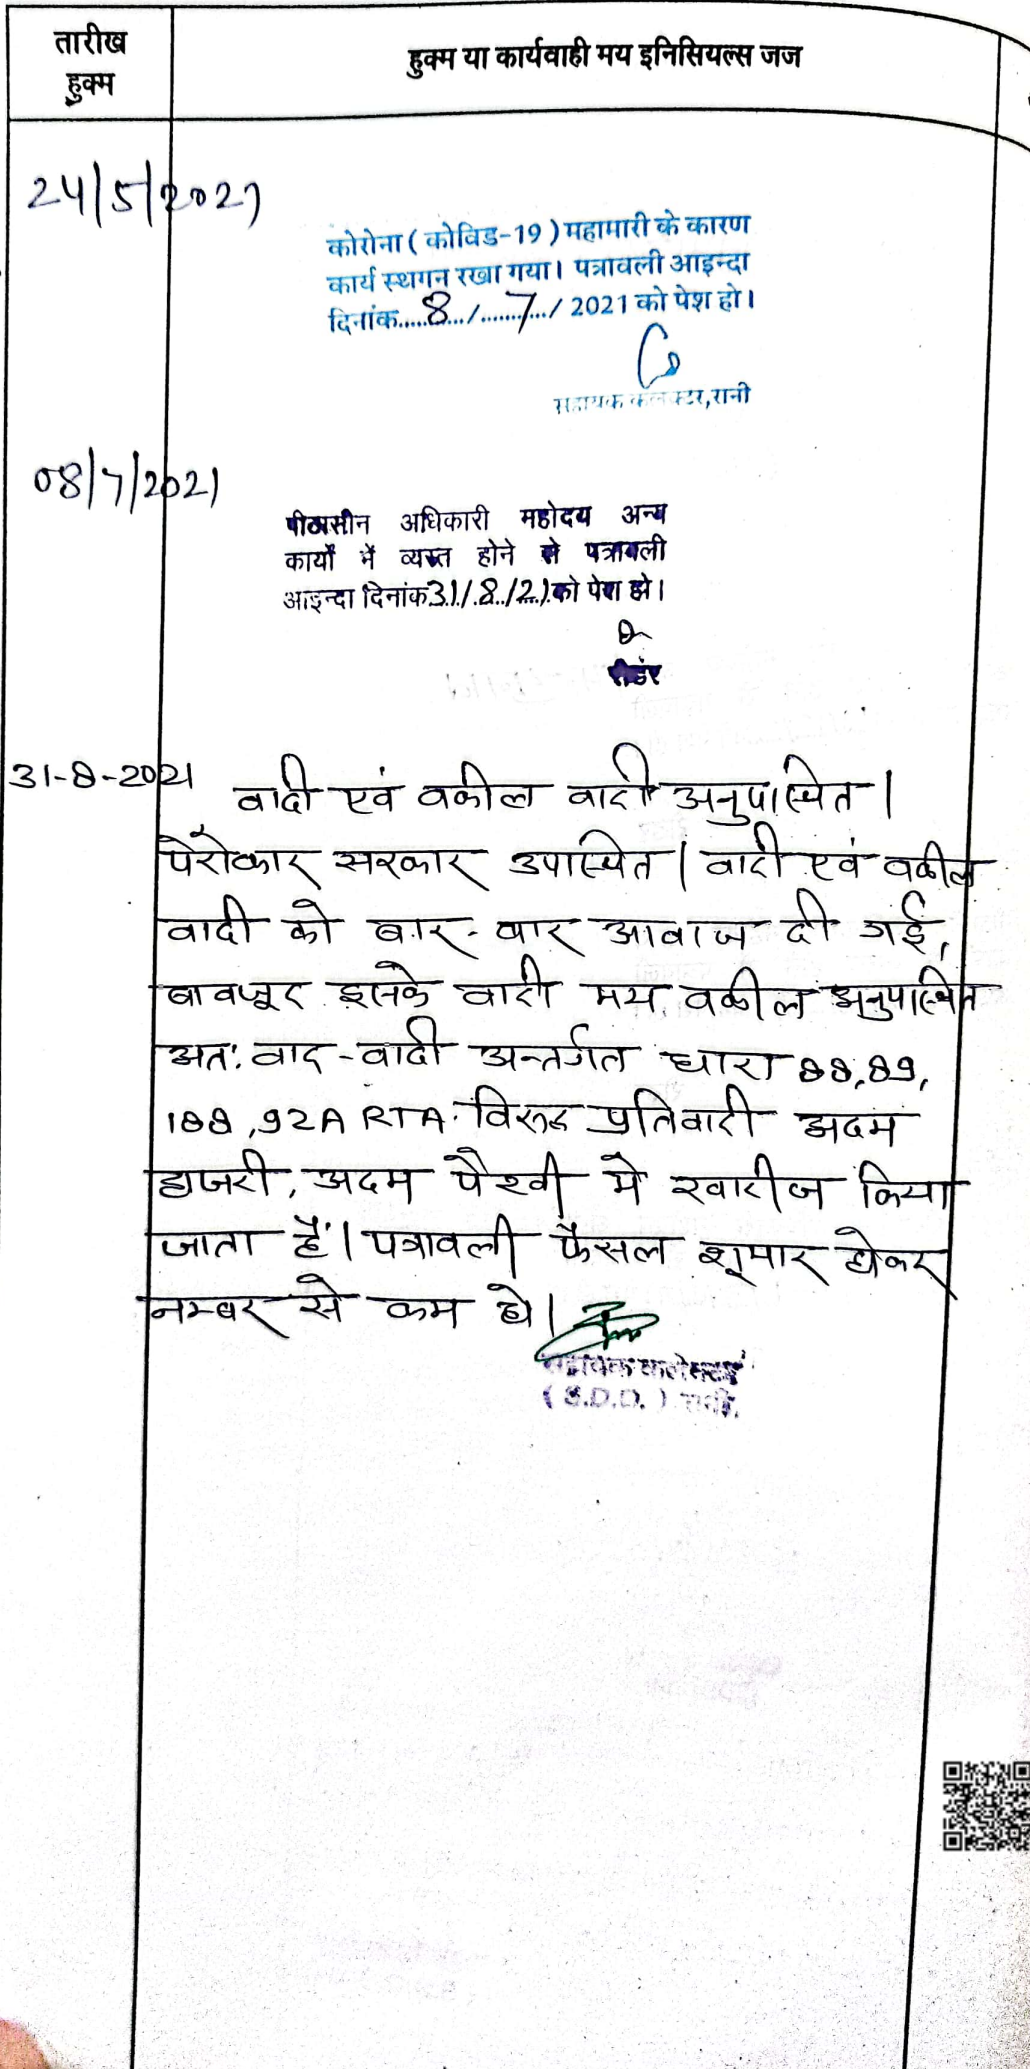 तारीख
हुक्म
हुक्म या कार्यवाही मय इनिसियल्स जज
24/5/2021
कोरोना ( कोविड-19 ) महामारी के कारण
कार्य स्थगन रखा गया। पत्रावली आइन्दा
दिनांक.....8.../.......7.../ 2021 को पेश हो।
सहायक कलक्टर,रानी
08/7/2021
पीठासीन अधिकारी महोदय अन्य
कार्यों में व्यस्त होने से पत्रावली
आइन्दा दिनांक31/.8./21.को पेश हो।
रीडर
31-8-2021
वादी एवं वकील वादी अनुपस्थित।
पैरोकार सरकार उपस्थित। वादी एवं वकील
वादी को बार-बार आवाज दी गई,
बावजूद इसके वादी मय वकील अनुपस्थित
अतः वाद-वादी अन्तर्गत धारा 88,89,
188,92A RTA. विरुद्ध प्रतिवादी अदम
हाजरी, अदम पैरवी मे खारीज किया
जाता हैं। पत्रावली फैसल शूमार होकर
नम्बर से कम हो।
सहायक कलेक्टर
(S.D.O.) रानी.